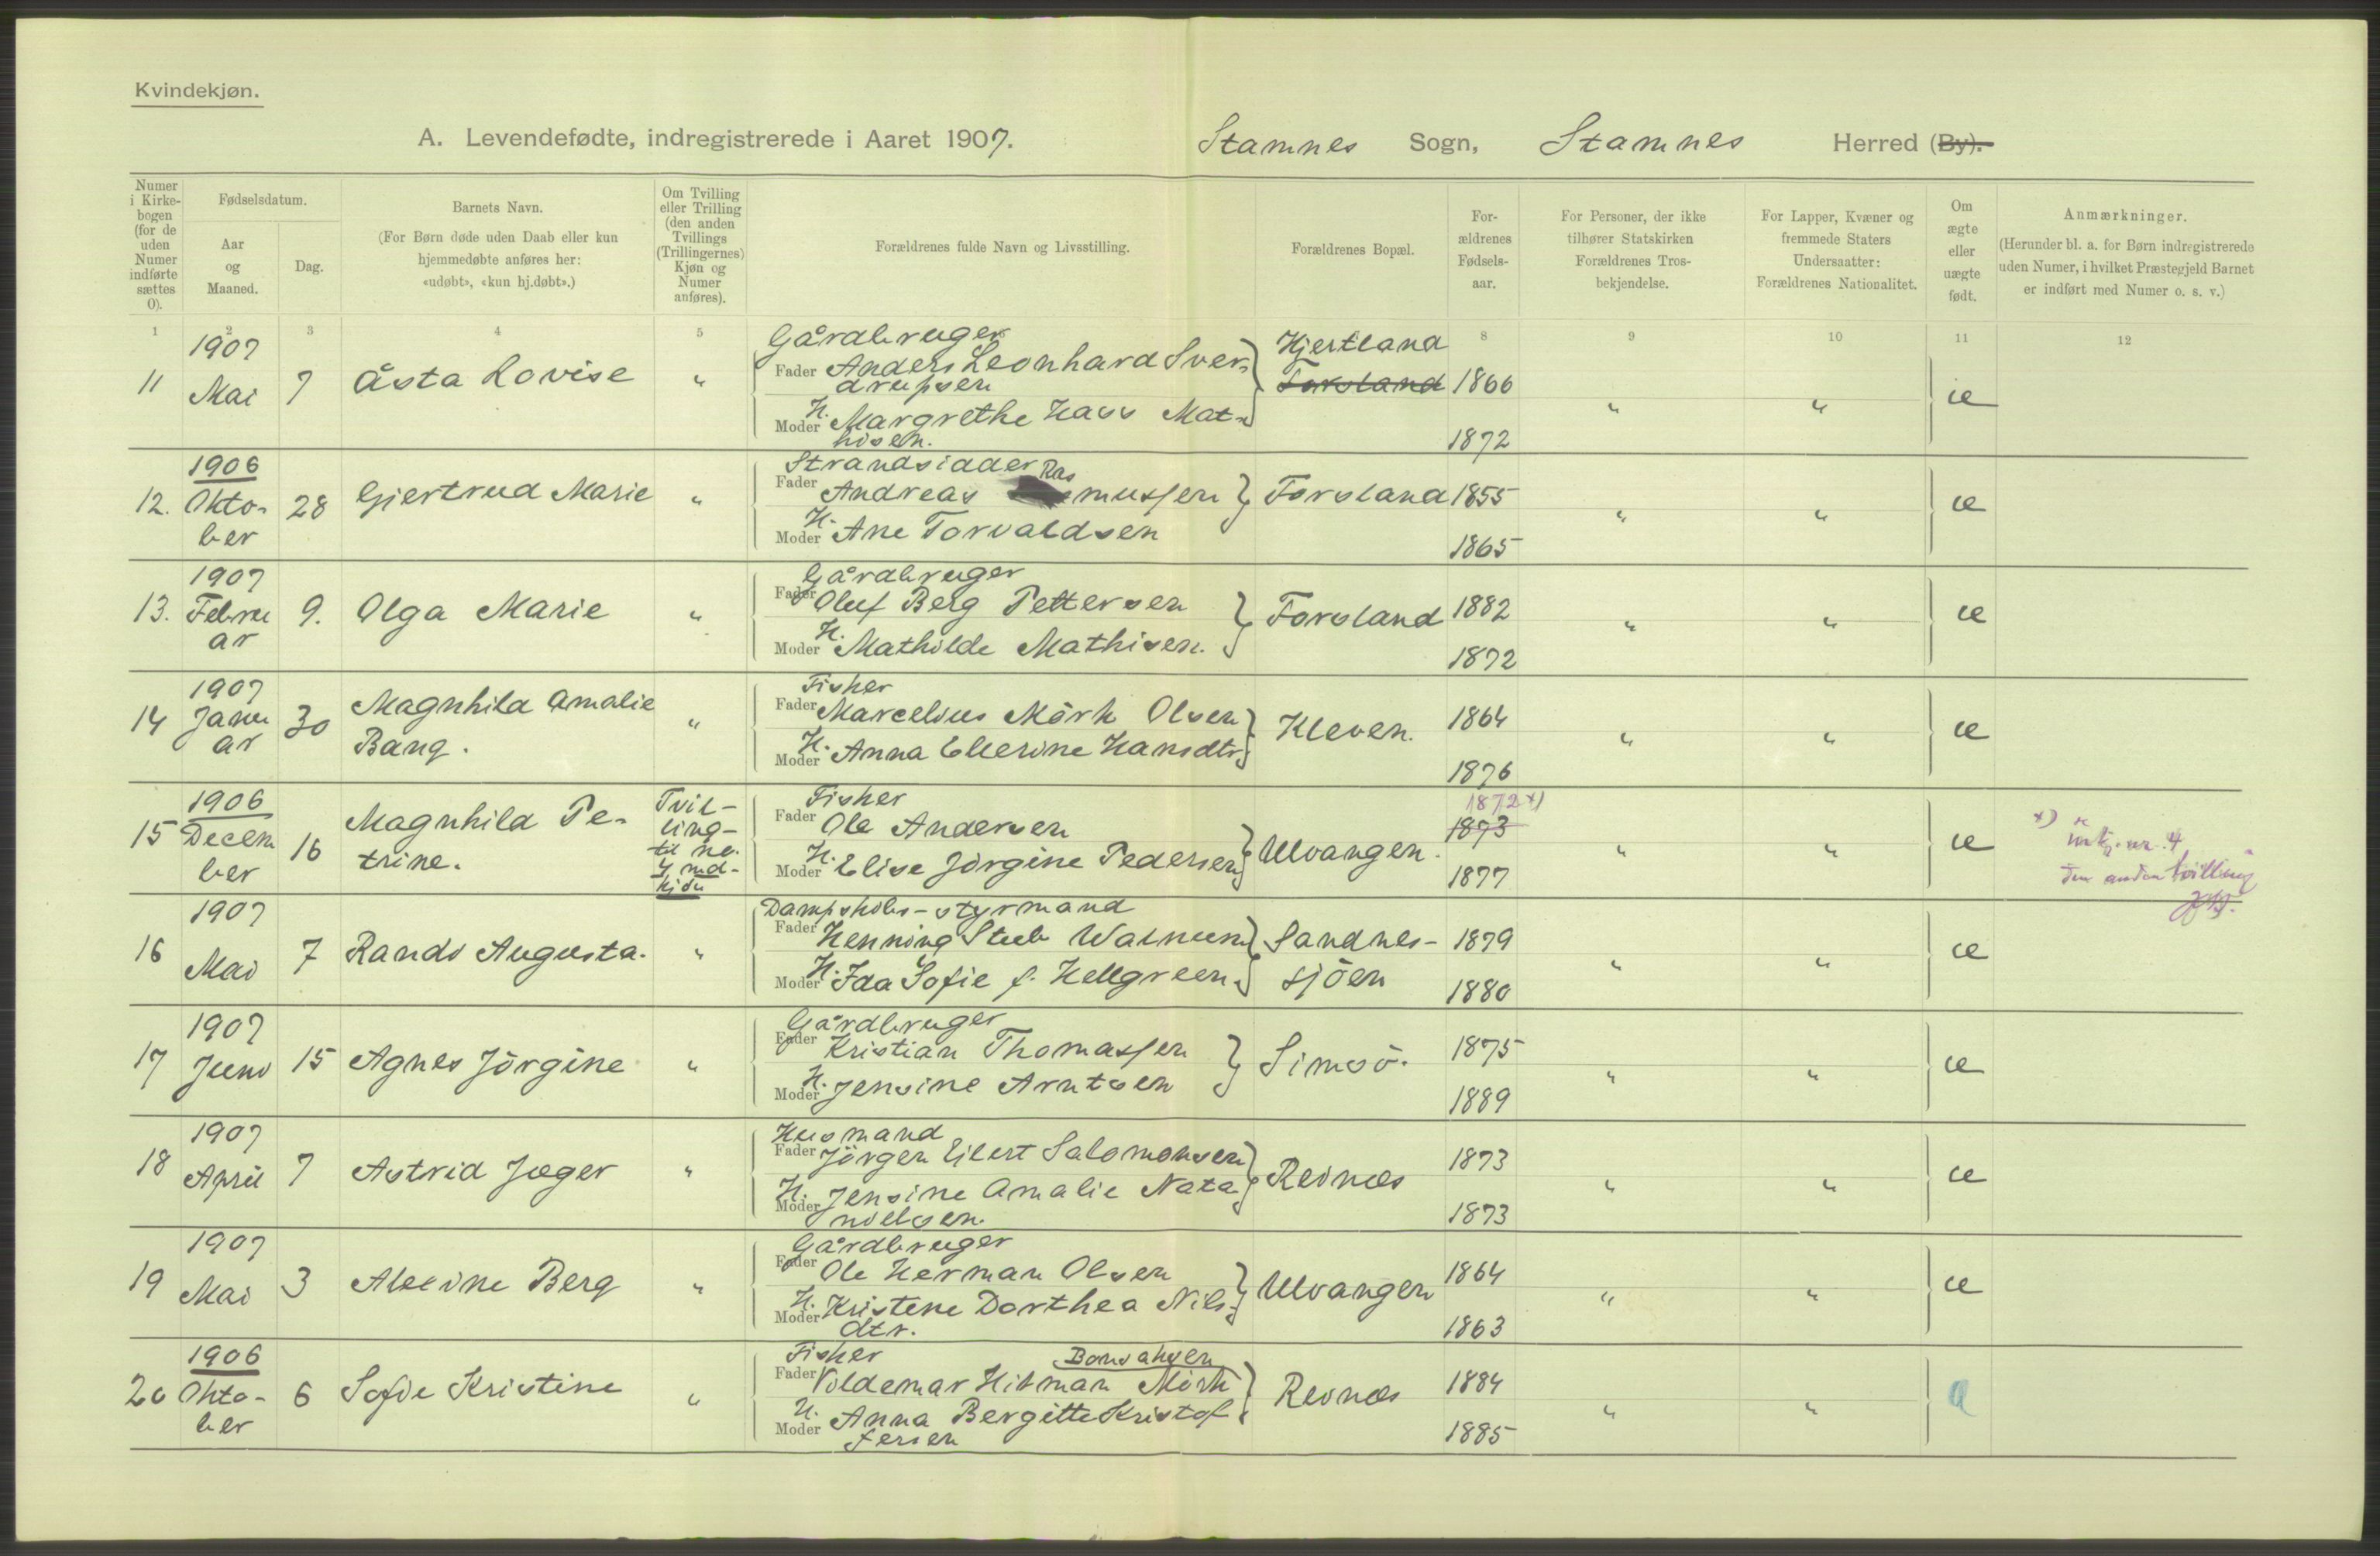 Kvindekjøn.
A. Levendefødte, indregistrerede i Aaret 1907. Stamnes Sogn, Stamnes Herred (By).
Numer i Kirkebogen (for de uden Numer indførte sættes 0).
Fødselsdatum.
Aar og Maaned.
Dag.
Barnets Navn.
(For Børn døde uden Daab eller kun
hjemmedøbte anføres her:
«udøbt», «kun hj.døbt».)
Om Tvilling
eller Trilling
(den anden
Tvillings
(Trillingernes)
Kjøn og
Numer
anføres).
Forældrenes fulde Navn og Livsstilling.
Forældrenes Bopæl.
For-
ældrenes
Fødsels-
aar.
For Personer, der ikke
tilhører Statskirken
Forældrenes Tros-
bekjendelse.
For Lapper, Kvæner og
fremmede Staters
Undersaatter:
Forældrenes Nationalitet.
Om
ægte
eller
uægte
født.
Anmærkninger.
(Herunder bl. a. for Børn indregistrerede
uden Numer, i hvilket Præstegjeld Barnet
er indført med Numer o. s. v.)
1 2 3 4 5 8 9 10 11 12
11 1907 Mai 7 Åsta Lovise "
Gårdbruger
Fader Anders Leonhard Sver-
drupsen
H.
Moder Margrethe Hass Mat-
hisen.
Hjertland
Forsland 1866
1872
" " æ
12. 1906 Okto-
ber 28 Gjertrud Marie "
Strandsidder
Fader Andreas Rasmussen
H.
Moder Ane Torvaldsen
Forsland 1855
1865
" " æ
13. 1907 Febru
ar 9. Olga Marie "
Gårdbruger
Fader Oluf Berg Pettersen
H.
Moder Mathilde Mathisen.
Forsland 1882
1872
" " æ
14 1907 Janu
ar 30 Magnhild Amalie
Bang. "
Fisker
Fader Marcelius Mörk Olsen
H.
Moder Anna Ellerine Hansdtr
Kleven. 1864
1876
" " æ
15 1906 Decem
ber 16 Magnhild Pe-
trine.
Tvil-
ling-
til no.
4 md-
kjön
Fisker
Fader Ole Andersen
H.
Moder Elise Jörgine Pedersen
Ulvangen. 1872 x)
1873
1877
" " æ
x) mk. nr. 4
den anden tvilling
16 1907 Mai 7 Randi Augusta. "
Dampskibs-styrmand
Fader Henning Stub Walnum
H.
Moder Ida Sofie f. Hellgreen
Sandnes-
sjöen
1879
1880
" " æ
17 1907 Juni 15 Agnes Jörgine "
Gårdbruger
Fader Kristian Thomassen
H.
Moder Jensine Arntsen
Simsö. 1875
1889
" " æ
18 1907 April 7 Astrid Jæger "
Husmand
Fader Jörgen Eilert Salomonsen
H.
Moder Jensine Amalie Nata
nielsen.
Reinæs 1873
1873
" " æ
19 1907 Mai 3 Alexine Berg "
Gårdbruger
Fader Ole Herman Olsen
H.
Moder Kristine Dorthea Nils-
dtr.
Ulvangen 1864
1863
" " æ
20 1906 Okto-
ber 6 Sofie Kristine "
Fisker
Fader Voldemar Hitman Mörk
H.
Moder Anna Bergitte Kristof
fersen
Reinæs 1884
1885
" "